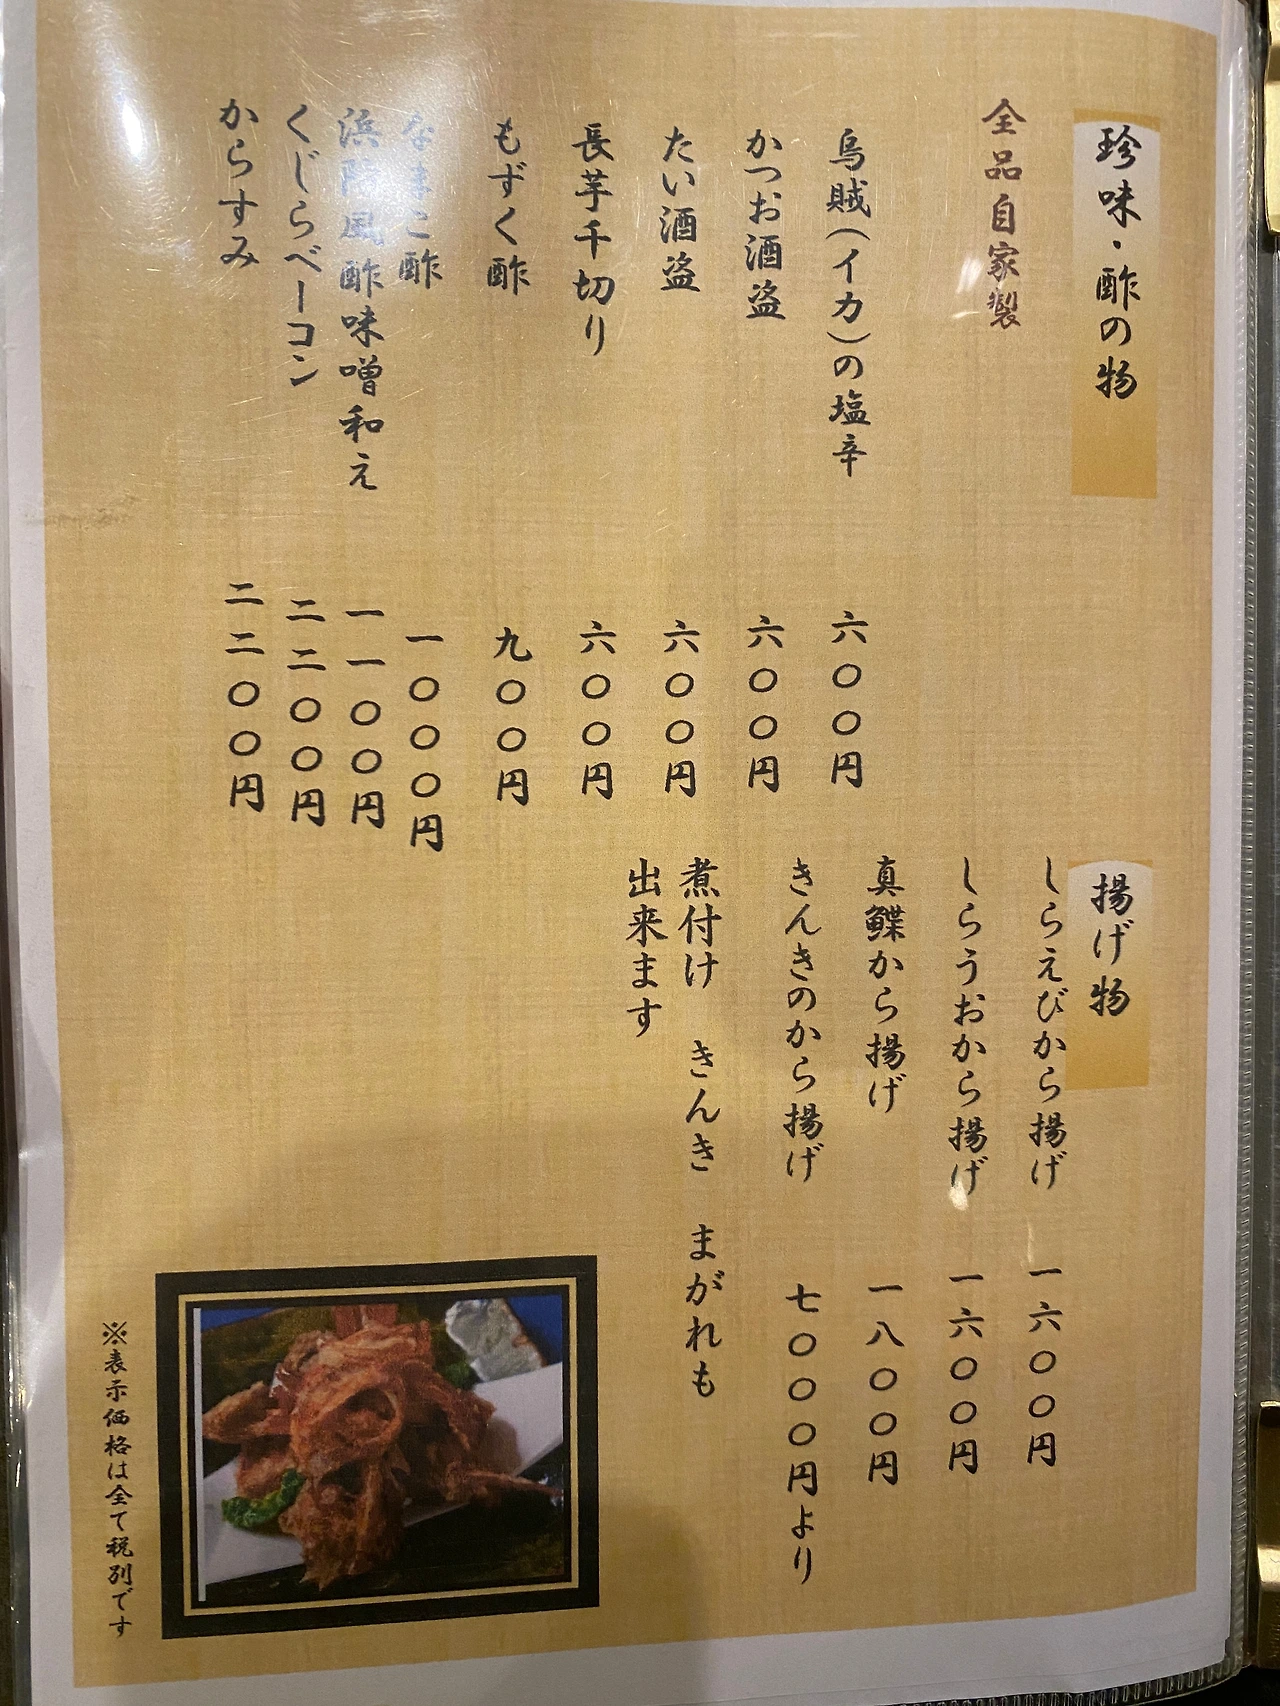 珍味・酢の物
全品自家製
烏賊(イカ)の塩辛 六〇〇円
かつお酒盗 六〇〇円
たい酒盗 六〇〇円
長芋千切り 六〇〇円
もずく酢 九〇〇円
なまこ酢 一〇〇〇円
浜防風酢味噌和え 一一〇〇円
くじらベーコン 二二〇〇円
からすみ 二二〇〇円
揚げ物
しらえびから揚げ 一六〇〇円
しらうおから揚げ 一六〇〇円
真鰈から揚げ 一八〇〇円
きんきのから揚げ 七〇〇〇円より
煮付け きんき まがれも
出来ます
※表示価格は全て税別です